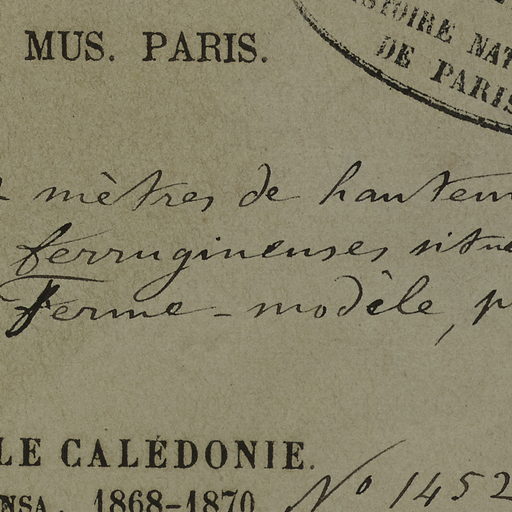 MUS. PARIS.
HISTOIRE NAT
DE PARIS
mètres de hauteu
ferrugineuses situé
Ferme-modèle, p
LE CALÉDONIE.
NSA, 1868-1870
No 1452